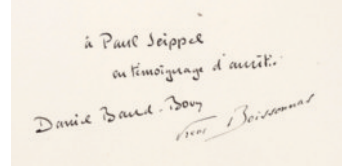 à Paul Seippel
en témoignage d'amitié.
Daniel Baud-Bovy
Fred Boissonnas